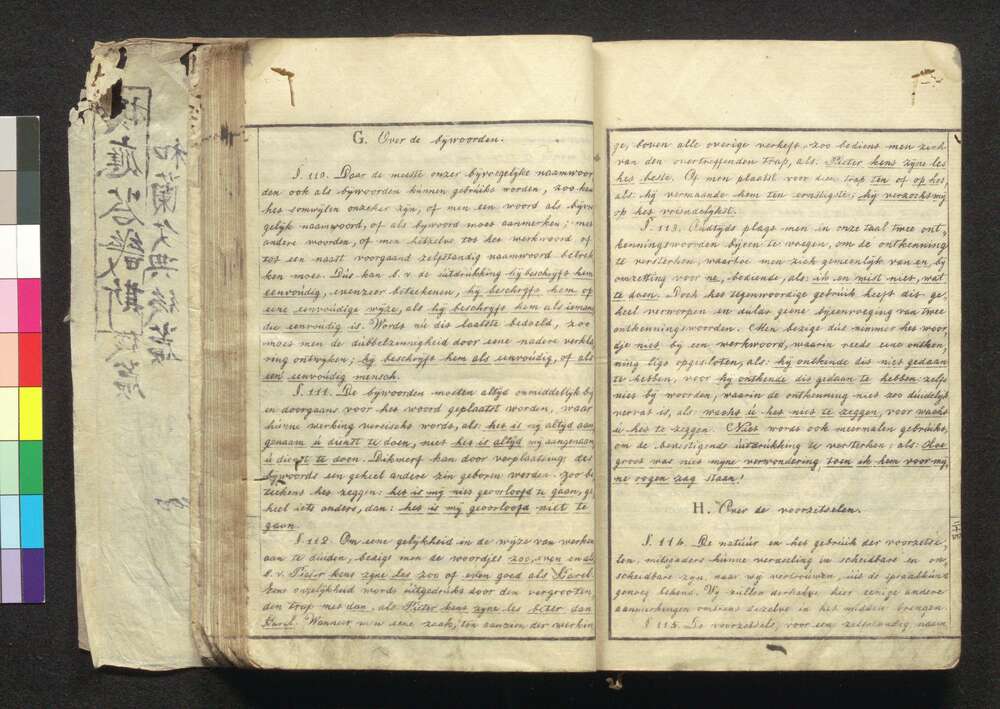 G. Over de bijwoorden.
§. 110. Daar de meeste onzer bijvoegelijke naamwoor
den ook als bijwoorden kunnen gebruikt worden, zoo kan
het somwijlen onzeker zijn, of men een woord als bijvoe
gelijk naamwoord, of als bijwoord moet aanmerken; met
andere woorden, of men hetzelve tot het werkwoord of
tot een naast voorgaand zelfstandig naamwoord betrek
ken moet. Dús kan b. v. de uitdrukking hij beschrijft hem
eenvoúdig, evenzeer beteekenen, hij beschrijft hem op
eene eenvoudige wijze, als hij beschrijft hem als iemand
die eenvoudig is. Wordt nú dit laatste bedoeld, zoo
moet men de dúbbelzinnigheid door eene nadere verkla
ring ontwijken; hij beschrijft hem als eenvoúdig, of als
een eenvoúdig mensch.
§. 111. De bijwoorden moeten altijd onmiddelijk bij
en doorgaans voor het woord geplaatst worden, waar
húnne werking vereischt wordt, als het is mij altijd aan
genaam ú dienst te doen, niet het is altijd mij aangenaam
ú dienst te doen. Dikwerf kan door verplaatsing des
bijwoords een geheel andere zin geboren worden. Zoo be
teekent het zeggen: het is mij niet geoorloofd te gaan, ge
heel iets anders, dan: het is mij geoorloofd niet te
gaan.
§. 112. Om eene gelijkheid in de wijze van werken
aan te dúiden, bezigt men de woordjes zoo, even en als
b. v. Pieter kent zijne les zoo of even goed als Karel.
Eene ongelijkheid wordt uitgedrukt door den vergrooten
den trap met dan, als Pieter kent zijne les beter dan
Karel. Wanneer nú eene zaak, ten aanzien der werkin
ge, boven alle overige verheft, zoo bedient men zich
van den overtreffenden trap, als: Pieter kent zijne les
het beste. Of men plaatst voor dien trap ten of op het,
als: hij vermaande hem ten ernstigste; hij verzocht mij
op het vriendelijkst.
§. 113. Oudtijds plagt men in onze taal twee ont,
kenningswoorden bijeen te voegen, om de ontkenning
te versterken, waartoe men zich gemeenlijk van en, bij
omzetting voor ne, bediende, als: ik en wist niet, wat
te doen. Doch het tegenwoordige gebruik heeft dit ge,
heel verworpen en dúldt geene bijeenvoeging van twee
ontkenningswoorden. Men bezige dús nimmer het woor,
dje niet bij een werkwoord, waarin reeds eene ontken,
ning ligt opgesloten, als: hij ontkende dit niet gedaan
te hebben, voor hij ontkende dit gedaan te hebben; zelfs
niet bij woorden, waarin de ontkenning niet zoo duidelijk
vervat is, als: wacht ú het niet te zeggen, voor wacht
ú het te zeggen. Niet wordt ook meermalen gebruikt,
om de bevestigende uitdrukking te versterken; als: Hoe
groot was niet mijne verwondering toen ik hem voor mij,
ne oogen zag staan!
H. Over de voorzetselen.
§. 114. De natúúr en het gebruik der voorzetse,
len, mitsgaders húnne verdeeling in scheidbare en on,
scheidbare zijn, naar wij vertroúwen, uit de spraakkunst
genoeg bekend. Wij zullen derhalve hier eenige andere
aanmerkingen omtrent dezelve in het midden brengen.
§. 115. De voorzetsels, voor een zelfstandig naam